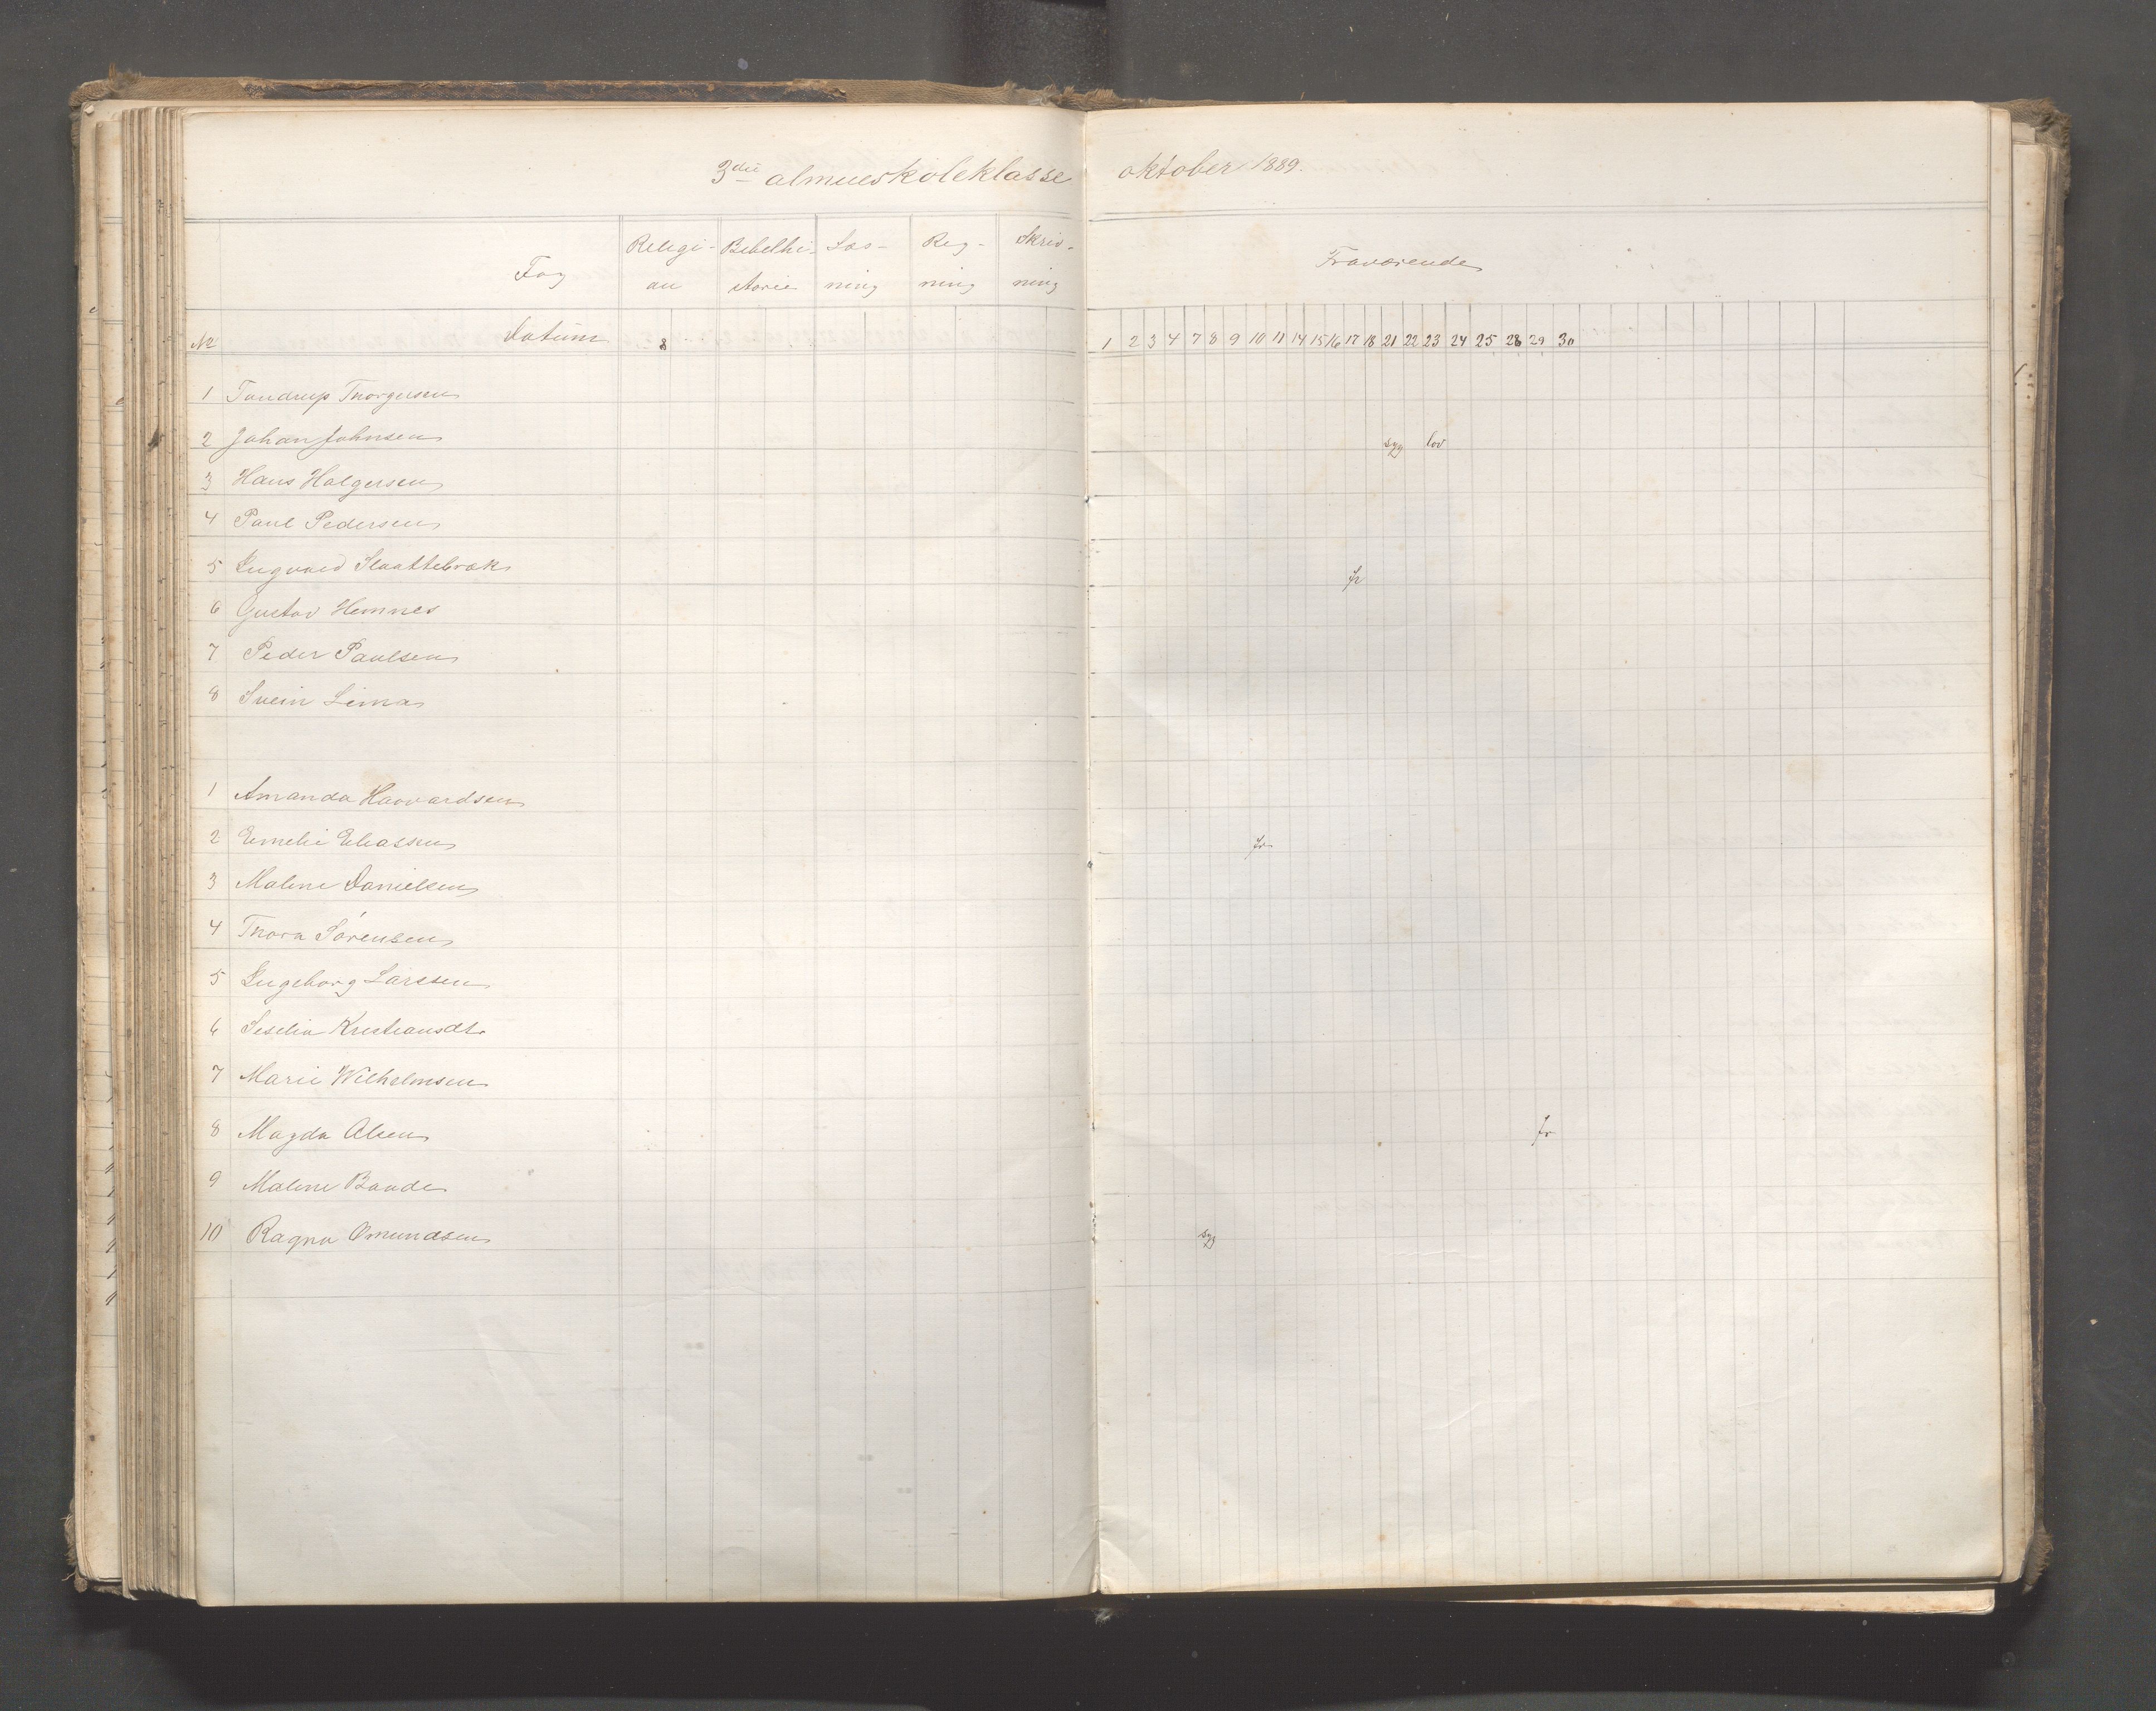 3die almueskoleklasse oktober 1889.
Fag Religi-on Bibelhi-storie Læs-ning Reg-ning Skriv-ning Fraværende
No Datum 8 1 2 3 4 7 8 9 10 11 14 15 16 17 18 21 22 23 24 25 28 29 30
1 Tandrup Thorgersen
2 Johan Johnsen syg lov
3 Hans Halgersen
4 Paul Pedersen
5 Ingvald Slaattebræk fr
6 Gustav Hemnes
7 Peder Paulsen
8 Svein Lima
1 Amanda Haavardsen
2 Emelie Eliassen fr
3 Maline Danielsen
4 Thora Sørensen
5 Ingeborg Larssen
6 Seselia Kristiansdtr
7 Marie Wilhelmsen
8 Magda Olsen fr
9 Maline Bande
10 Ragna Omundsen syg